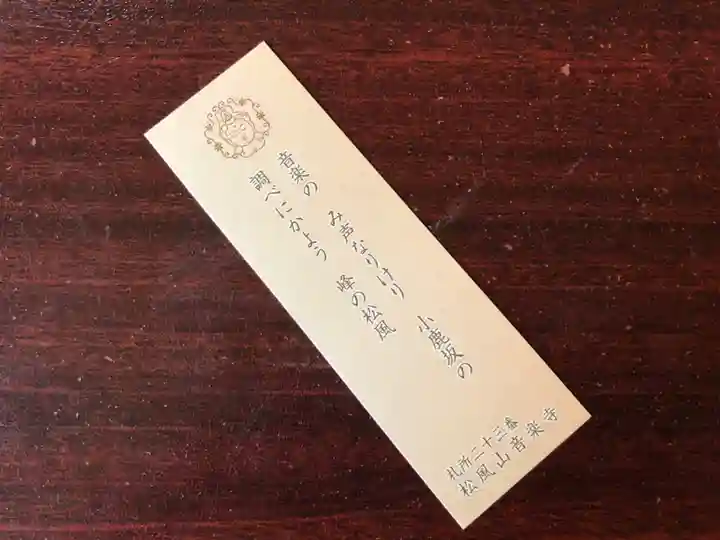 音楽の み声なりけり 小鹿坂の
調べにかよう 峰の松風
札所二十三番
松風山音楽寺